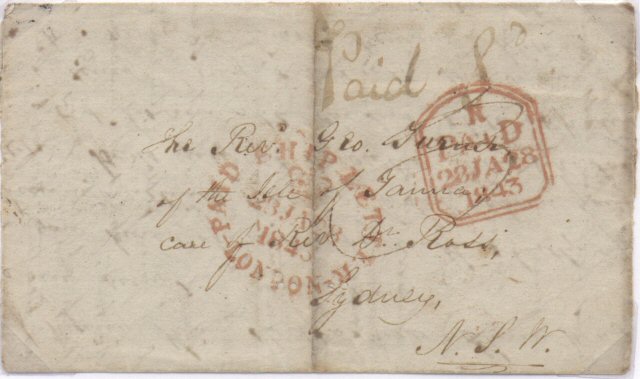 Paid 8d
The Rev. Geo. Turner
of the Isle of Tanna
care of Rev. Dr. Ross,
Sydney,
N. S. W.
R
PAID
28 JA 28
1843
PAID SHIP LETTER LONDON
1843